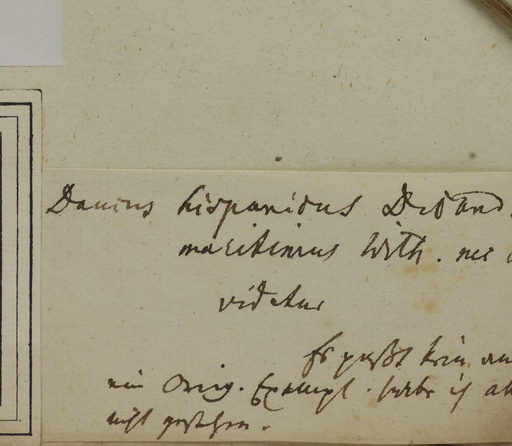 Daucus hispanicus DeCand.
maritimus With. nec
videtur
Es paßt kein
ein Orig. Exempl. habe ich
nicht gesehen.